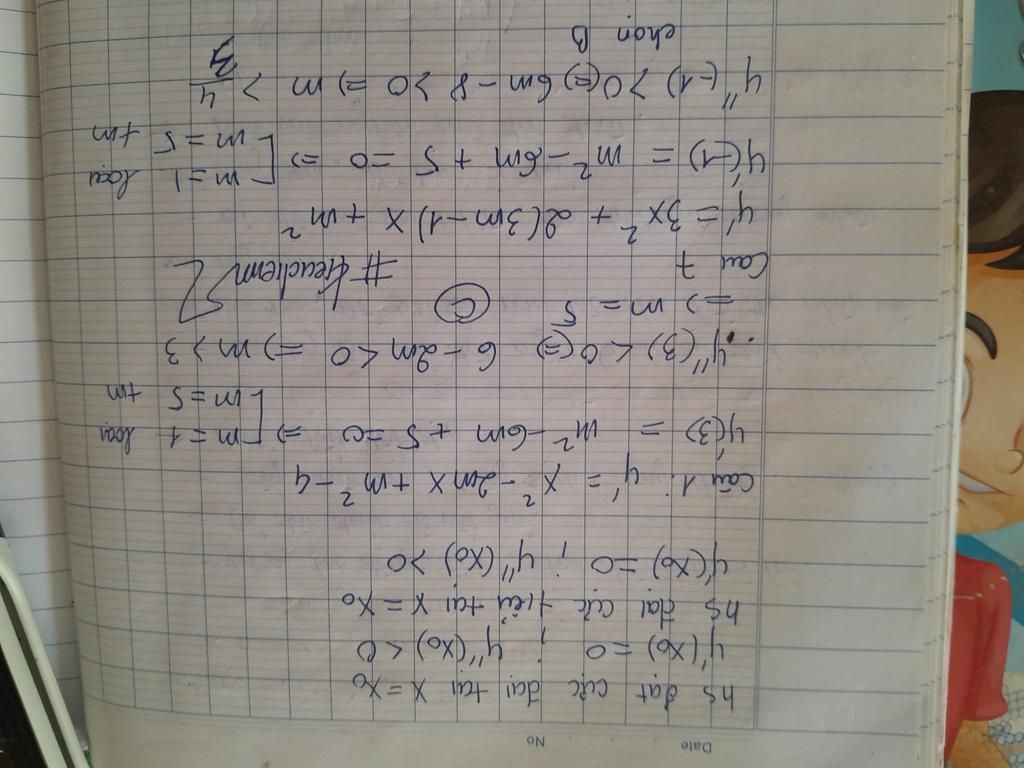 Date No
hs đạt cực đại tại x = x0
y'(x0) = 0 ; y''(x0) < 0
hs đạt cực tiểu tại x = x0
y'(x0) = 0 ; y''(x0) > 0
Câu 1: y' = x² - 2mx + m² - 4
y'(3) = m² - 6m + 5 = 0 => [ m = 1 loại
m = 5 tm
y''(3) < 0 (=) 6 - 2m < 0 => m > 3
=> m = 5 C
Câu 7
y' = 3x² + 2(3m - 1)x + m²
y'(-1) = m² - 6m + 5 = 0 => [ m = 1 loại
m = 5 tm
y''(-1) > 0 (=) 6m - 8 > 0 => m > 4/3
chọn B